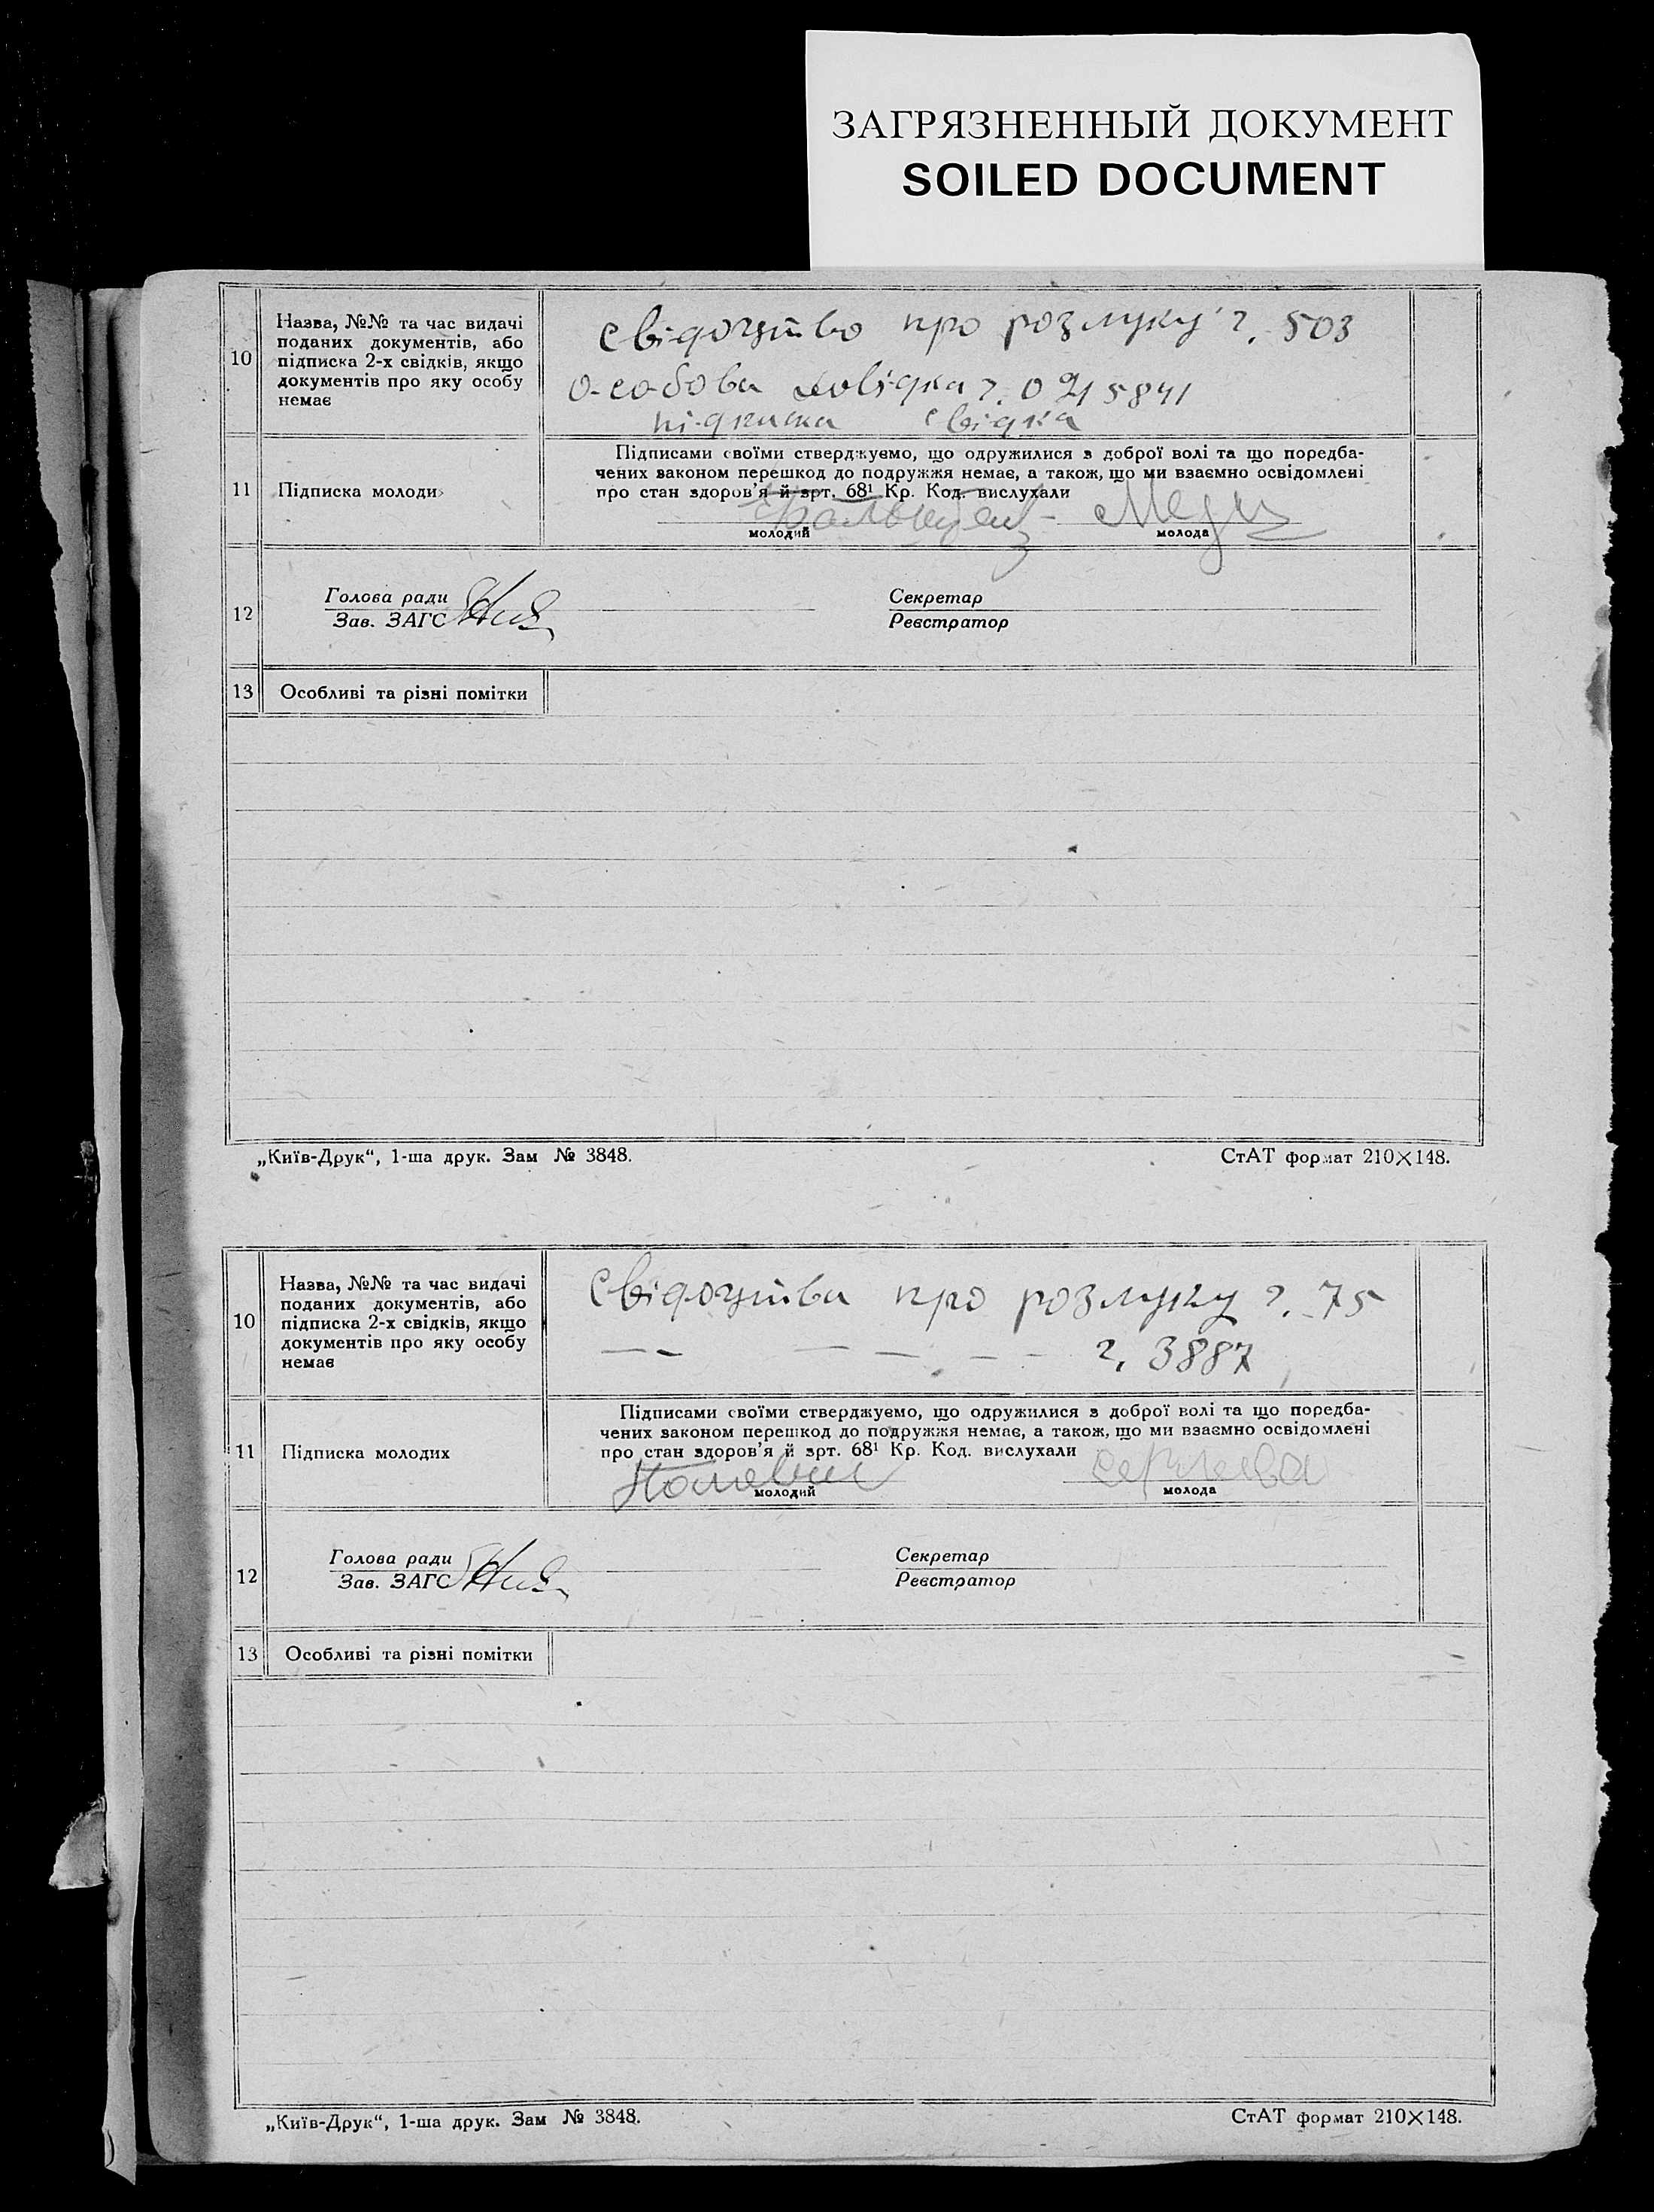 ЗАГРЯЗНЕННЫЙ ДОКУМЕНТ
SOILED DOCUMENT
10
Назва, №№ та час видачі
поданих документів, або
підписка 2-х свідків, якщо
документів про яку особу
немає
свідоцтво про розлуку ч. 503
особова довідка ч. 0215841
підписка свідка
11
Підписка молоди
Підписами своїми стверджуємо, що одружилися з доброї волі та що передба-
чених законом перешкод до подружжя немає, а також, що ми взаємно освідомлені
про стан здоров'я й арт. 68¹ Кр. Код. вислухали
молодий
молода
12
Голова ради
Зав. ЗАГС
Секретар
Реєстратор
13
Особливі та різні помітки
„Київ-Друк“, 1-ша друк. Зам № 3848.
СтАТ формат 210×148.
10
Назва, №№ та час видачі
поданих документів, або
підписка 2-х свідків, якщо
документів про яку особу
немає
Свідоцтва про розлуку ч. 75
— — — — — — ч. 3887
11
Підписка молодих
Підписами своїми стверджуємо, що одружилися з доброї волі та що передба-
чених законом перешкод до подружжя немає, а також, що ми взаємно освідомлені
про стан здоров'я й арт. 68¹ Кр. Код. вислухали
молодий
молода
12
Голова ради
Зав. ЗАГС
Секретар
Реєстратор
13
Особливі та різні помітки
„Київ-Друк“, 1-ша друк. Зам № 3848.
СтАТ формат 210×148.